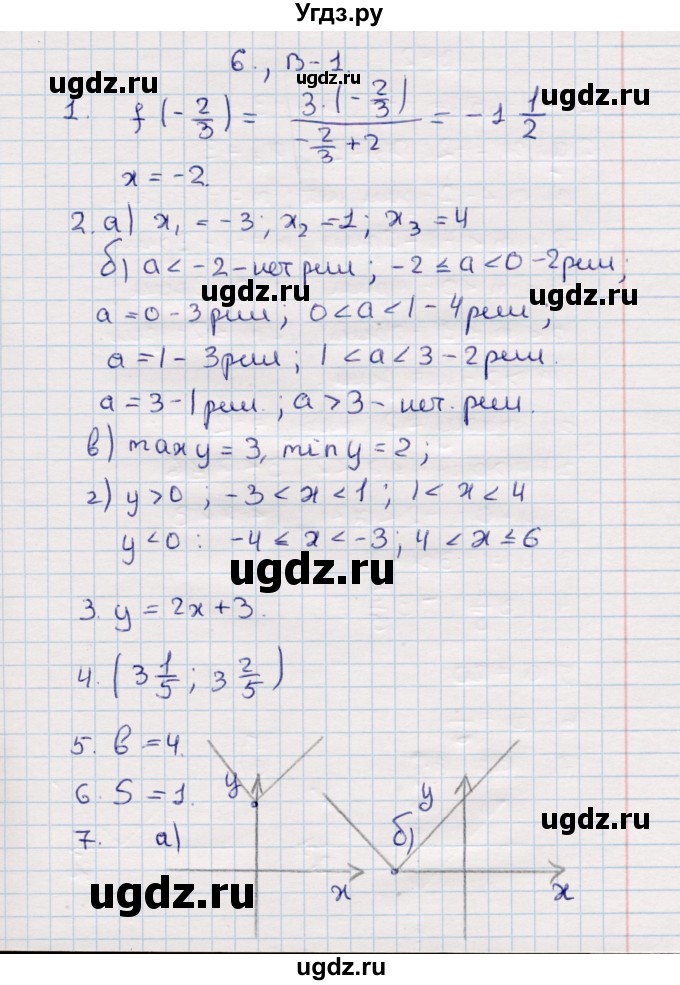 Угдз.ру
6., В-1.
ugdz.ru ugdz.ru
1. f(-2/3) = 3·(-2/3) / (-2/3 + 2) = -1 1/2
ugdz.ru
x = -2.
2. а) x₁ = -3; x₂ = 1; x₃ = 4
б) a < -2 - нет реш; -2 ≤ a < 0 - 2 реш;
ugdz.ru
a = 0 - 3 реш; 0 < a < 1 - 4 реш;
a = 1 - 3 реш; 1 < a < 3 - 2 реш.
a = 3 - 1 реш.; a > 3 - нет. реш.
в) max y = 3, min y = 2;
г) y > 0; -3 < x < 1; 1 < x < 4
y < 0: -4 ≤ x < -3; 4 < x ≤ 6
ugdz.ru
3. y = 2x + 3.
4. (3 1/5; 3 2/5)
5. b = 4.
6. S = 1.
y y
ugdz.ru
7. а) б)
ugdz.ru
x x
ugdz.ru